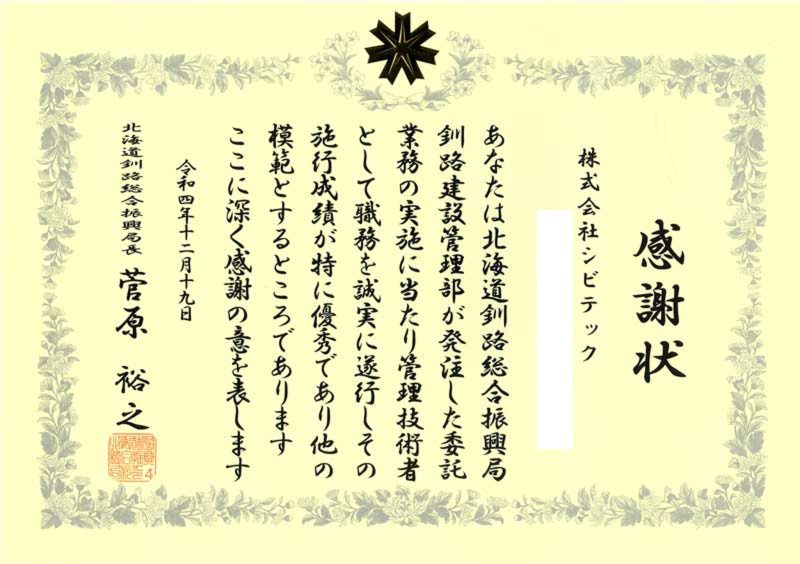 感謝状
株式会社シビテック
あなたは北海道釧路総合振興局
釧路建設管理部が発注した委託
業務の実施に当たり管理技術者
として職務を誠実に遂行しその
施行成績が特に優秀であり他の
模範とするところであります
ここに深く感謝の意を表します
令和四年十二月十九日
北海道釧路総合振興局長 菅原 裕之